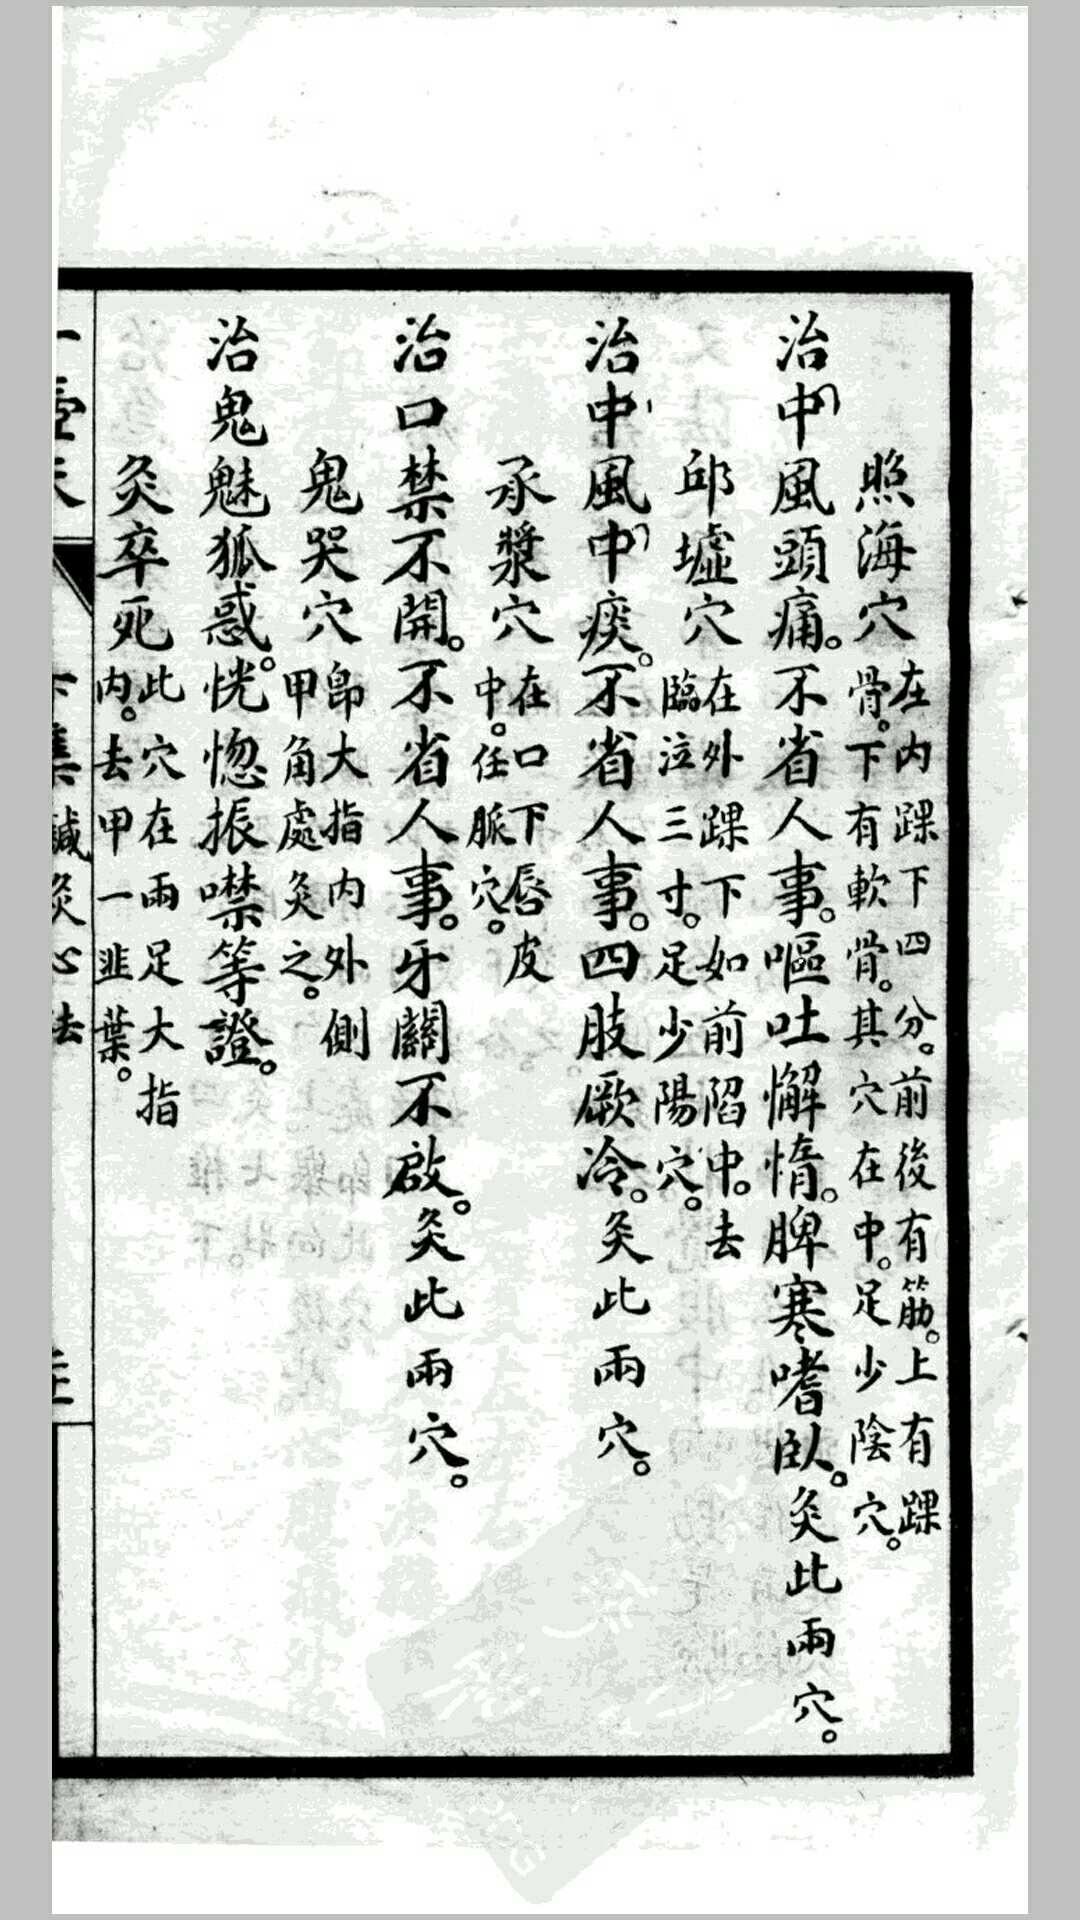 照海穴 在内踝下四分。前後有筋。上有踝
骨。下有軟骨。其穴在中。足少陰穴。
治中風頭痛。不省人事。嘔吐懈惰。脾寒嗜臥。灸此兩穴。
邱墟穴 在外踝下如前陷中。去
臨泣三寸。足少陽穴。
治中風中痰。不省人事。四肢厥冷。灸此兩穴。
承漿穴 在口下唇皮
中。任脈穴。
治口禁不開。不省人事。牙關不啟。灸此兩穴。
鬼哭穴 即大指内外側
甲角處灸之。
治鬼魅狐惑。恍惚振噤等證。
灸卒死 此穴在兩足大指
内。去甲一韭葉。